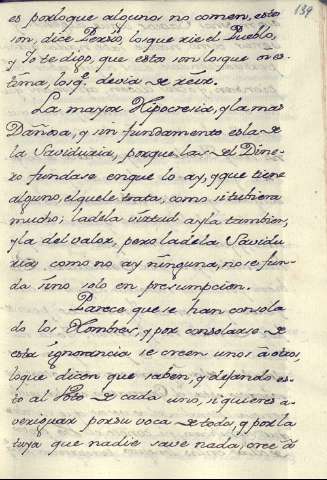 139
es porloque algunos no comen, estos
son, dice Persio, los que rie el Pueblo,
y Yo te digo, que estos son los que es-
tima, los q.e devia de reirse.
La mayor Hipocresia, y la mas
Dañosa, y sin fundamento es la de
la Saviduria, porque las del Dine-
ro fundase en que lo ay, y que tiene
alguno, el que le trata, como si tubiera
mucho; la de la virtud ayla tambien,
y la del valor, pero la de la Savidu-
ria, como no ay ninguna, no se fun-
da sino solo en presumpcion.
Parece que se han consola
do los Hombres, y por consolarse de
esta ignorancia se creen unos á otros,
loque dicen que saben, y dejando es-
to al Voto de cada uno, si quieres a-
veriguar por su voca de todos, y por la
tuya que nadie save nada, cree á